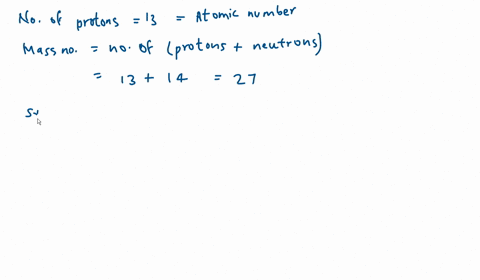 No. of protons = 13 = Atomic number
Mass no. = no. of (protons + neutrons)
= 13 + 14 = 27